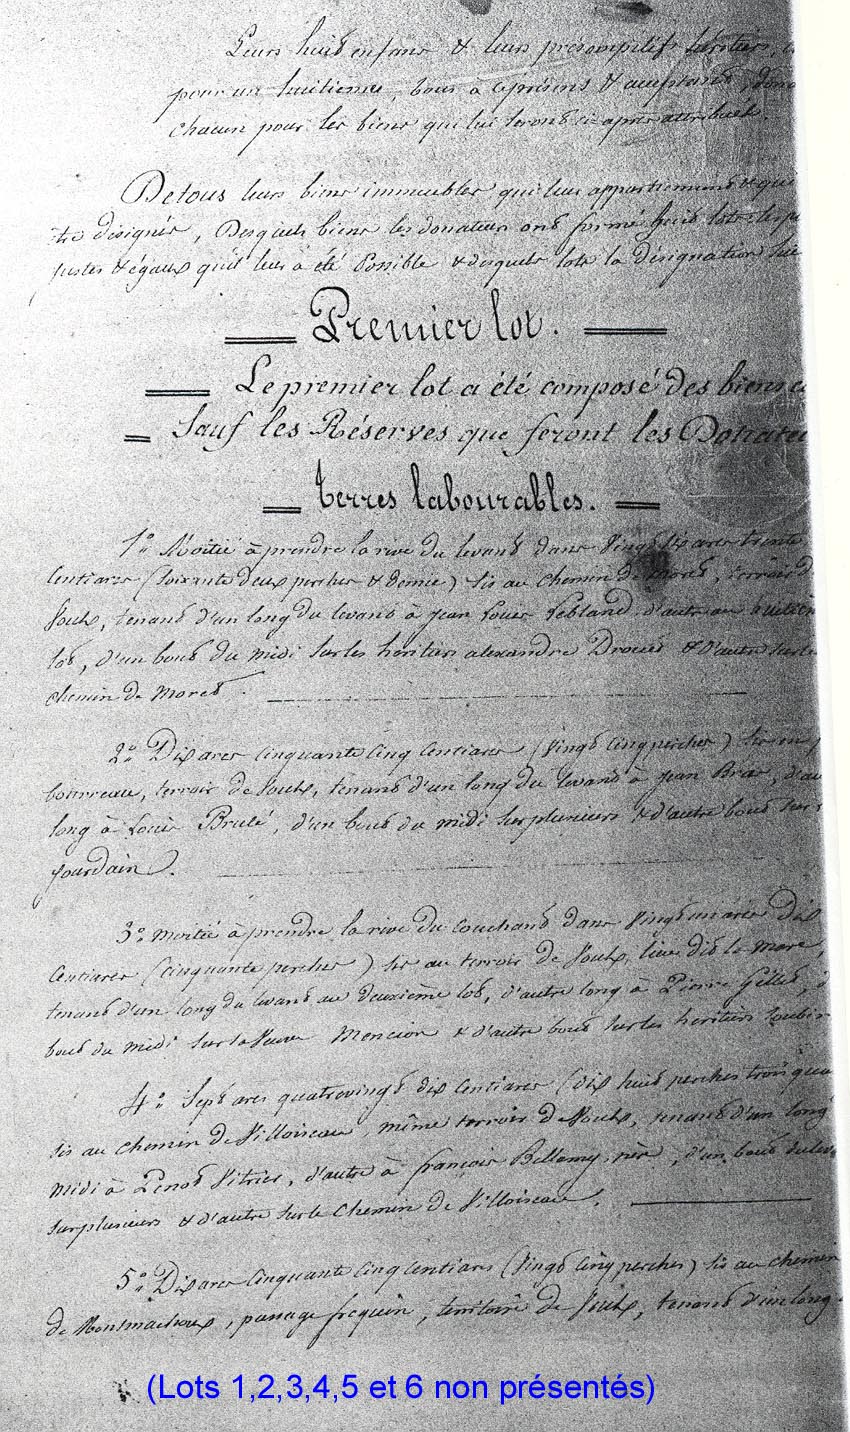 Leurs huit enfans & leurs présomptifs héritiers,
pour un huitième, tous à ce présens & acceptans,
chacun pour les biens qui lui seront ci-après attribués.
De tous leurs biens immeubles qui leur appartiennent & qui
être désignés, Desquels biens les donateurs ont formé huit lots les
justes & égaux qu'il leur a été Possible & desquels lots la désignation suit
Premier lot.
Le premier lot a été composé des biens
Sauf les Réserves que feront les Donateu
terres labourables.
1° Moitié à prendre la rive du levant dans Vingt six ares trente
Centiares (Soixante deux perches & demie) sis au chemin de Moret, terroir d
Voulx, tenant d'un long du levant à Jean Louis Lebland d'autre au huitièm
lot, d'un bout du midi sur les héritiers alexandre Drouet & d'autre sur le
chemin de Moret.
2° Dix ares Cinquante Cinq Centiares (Vingt Cinq perches) sis en
bourreau, terroir de Voulx, tenant d'un long du levant à Jean Bras, d'au
long à Louis Brulé, d'un bout du midi sur plusieurs & d'autre bout sur
Jourdain.
3° Moitié à prendre la rive du couchant dans Vingt un ares dix
Centiares (cinquante perches) sis au terroir de Voulx, lieu dit la mare,
tenant d'un long du levant au deuxième lot, d'autre long à Pierre Gillet, d
bout du midi sur la Veuve Mencion & d'autre bout sur les héritiers
4° Sept ares quatrevingt dix Centiares (dix huit perches trois qua
sis au chemin de Villoiseau, même terroir de Voulx, tenant d'un long
midi à Penot Vitrier, d'autre à françois Bellemy, d'un bout du lev
sur plusieurs & d'autre sur le Chemin de Villoiseau.
5° Dix ares Cinquante Cinq Centiares (Vingt Cinq perches) sis au chemin
de Montmachoux, passage frequin, territoire de Voulx, tenant d'un long
(Lots 1,2,3,4,5 et 6 non présentés)